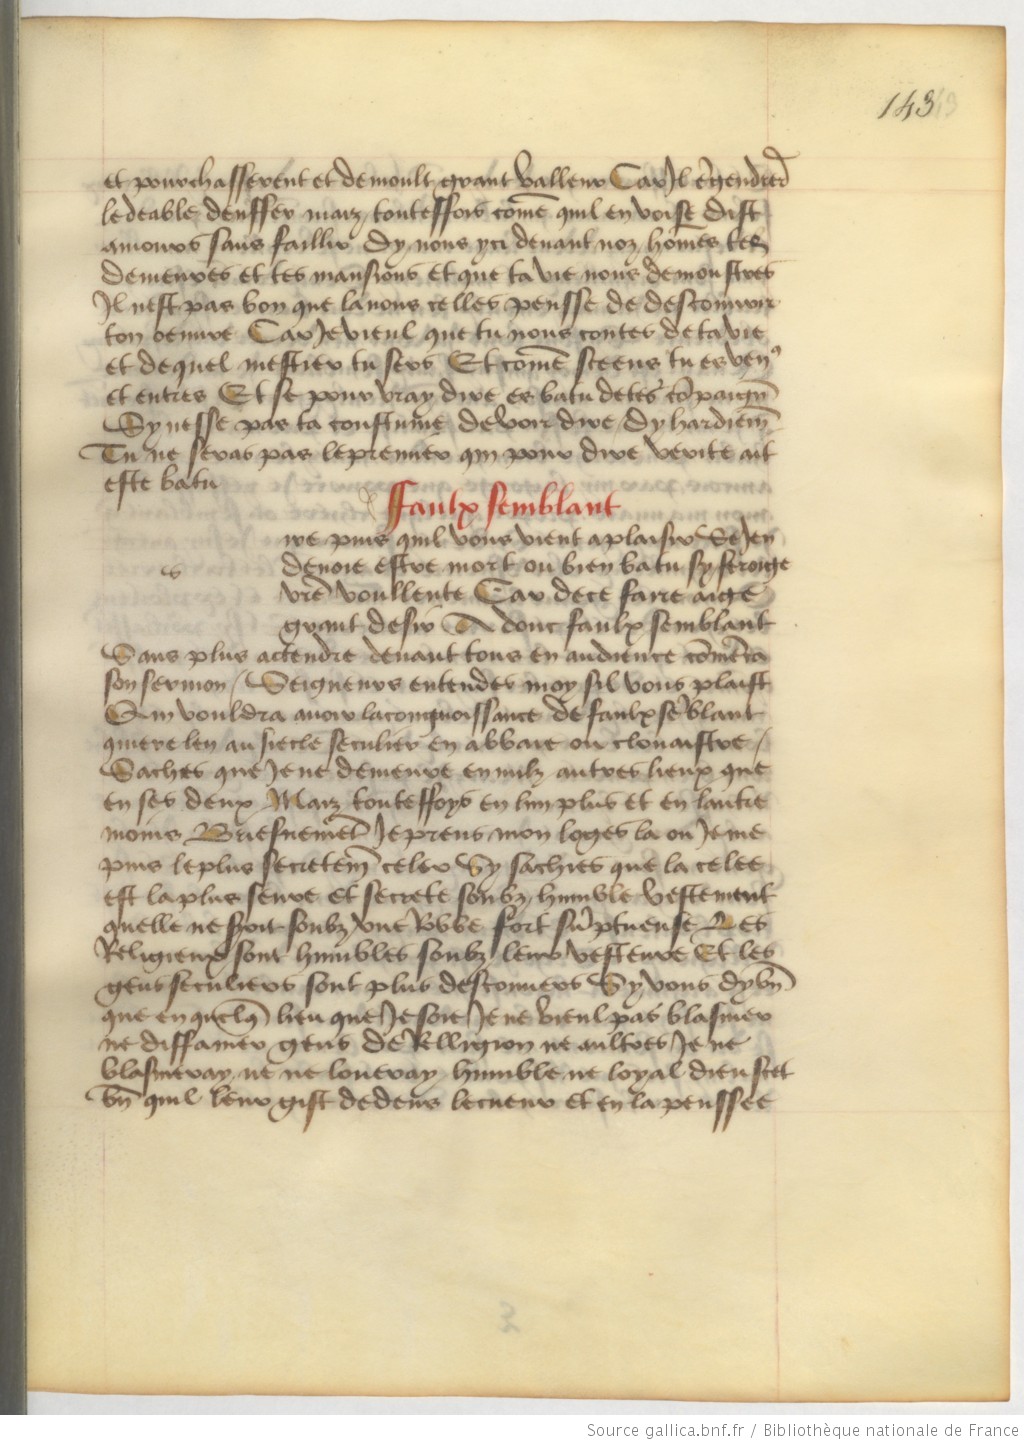 143
et pourchasserent et de moult grant valleur Car Il engendrerẽt
le deable denffer Maiz touteffois come quil en voise Dist
amours sans faillir Dy nous yci devant noz homes tes
demeures et tes mansions et que ta vie nous demonstres
Il nest pas bon que la nous celles pensse de descouvrir
ton oeuvre Car Je vieul que tu nous contes de ta vie
et de quel mestier tu sers Et come sceens tu es ven9
et entres Et se pour vray dire es batu de tes cõpaign
Sy nesse pas ta coustume de voir dire Dy hardiem̃
Tu ne seras pas le premier qui pour dire verite ait
este batu
Faulx semblant
s
ire puis quil vous vient a plaisir Se Jen
devoie estre mort ou bien batu sy feroige
vrẽ voullente Car de ce faire aige
grant desir A donc faulx semblant
Sans plus actendre devant tous en audience cõmẽca
son sermon / Seigneurs entendes moy sil vous plaist
Qui vouldra avoir la congnoissance de faulx sẽblant
quiere len au siecle seculier en abbaie ou clouaistre /
Saches que Je ne demeure en nulz autres lieux que
en ses deux Maiz touteffoys en lun plus et en lautre
moins Briefnemẽt Je prens mon loges la ou Je me
puis le plus secretem̃ celer Sy sachies que la celee
est la plus seure et secrete soubz humble vestement
quelle ne soit soubz une Robbe fort sũptueuse Les
Religieux sont humbles soubz leur vesteure Et les
gens seculiers sont plus descouvers Sy vous dy bñ
que en quelq lieu que Je soie Je ne vieul pas blasmer
ne diffamer gens de Relligion ne aultres Je ne
blasmeray ne ne loueray humble ne loyal dieu scet
bñ quil leur gist dedens le cueur et en la penssee
Source gallica.bnf.fr / Bibliothèque nationale de France